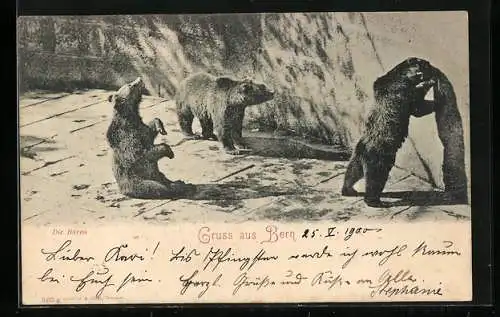 Die Bären
Gruss aus Bern 25. V. 1900
Lieber Kari! Bis Pfingsten werde ich wohl kaum
bei Euch sein. Herzl. Grüße und Küsse an Alle
Stephanie